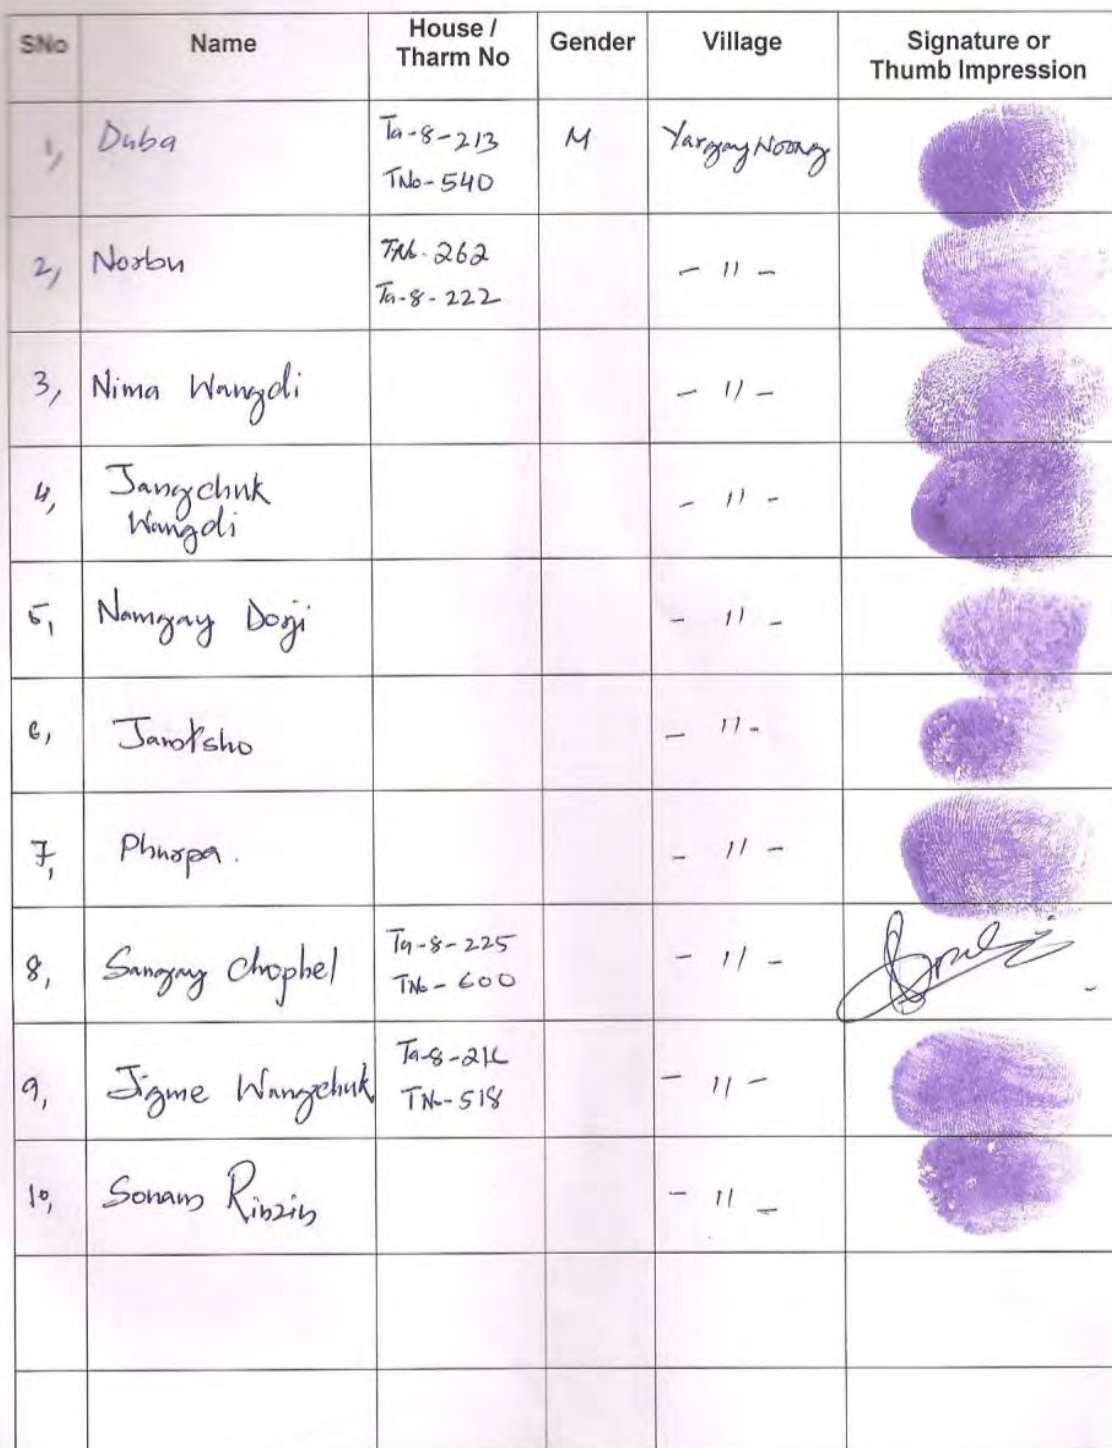 SNo Name House / Tharm No Gender Village Signature or Thumb Impression
1, Duba Ta-8-213 M
TNo-540
2, Norbu TNo-262 - 11 -
Ta-8-222
3, Nima Wangdi - 11 -
4, Jangchuk - 11 -
Wangdi
5, Namgay Dorji - 11 -
6, Jamtsho - 11 -
7, Phurpa. - 11 -
8, Sangay Chophel Ta-8-225 - 11 -
TNo-600
9, Jigme Wangchuk - 11 -
TNo-518
10, Sonam Rinzin - 11 -